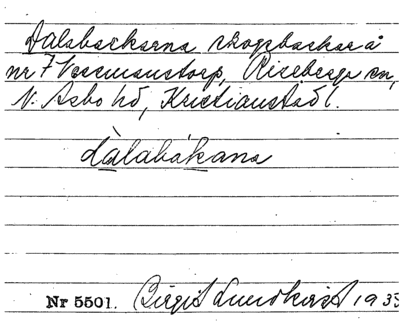 Dalabackarna skogsbackar å
nr 7 Vermanstorp, Riseberga sn,
N. Åsbo hd, Kristianstad l.
dàlabákana
Nr 5501. Birgit Lundkvist 1933